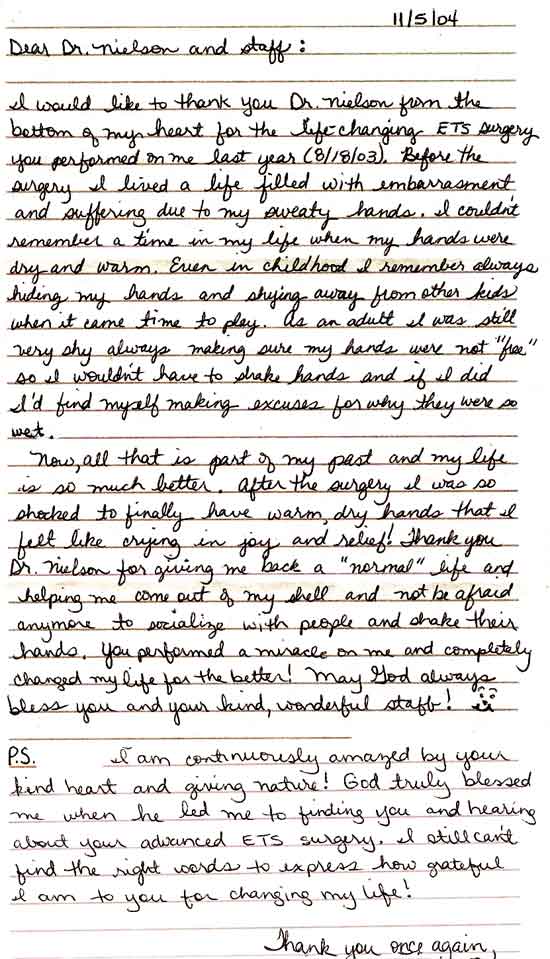 11/5/04
Dear Dr. Nielson and staff :
I would like to thank you Dr. Nielson from the
bottom of my heart for the life-changing ETS surgery
you performed on me last year (8/18/03). Before the
surgery I lived a life filled with embarrasment
and suffering due to my sweaty hands. I couldn't
remember a time in my life when my hands were
dry and warm. Even in childhood I remember always
hiding my hands and shying away from other kids
when it came time to play. As an adult I was still
very shy always making sure my hands were not "free"
so I wouldn't have to shake hands and if I did
I'd find myself making excuses for why they were so
wet.
Now, all that is part of my past and my life
is so much better. After the surgery I was so
shocked to finally have warm, dry hands that I
felt like crying in joy and relief! Thank you
Dr. Nielson for giving me back a "normal" life and
helping me come out of my shell and not be afraid
anymore to socialize with people and shake their
hands. You performed a miracle on me and completely
changed my life for the better! May God always
bless you and your kind, wonderful staff!
P.S. I am continuously amazed by your
kind heart and giving nature! God truly blessed
me when he led me to finding you and hearing
about your advanced ETS surgery. I still can't
find the right words to express how grateful
I am to you for changing my life!
Thank you once again,